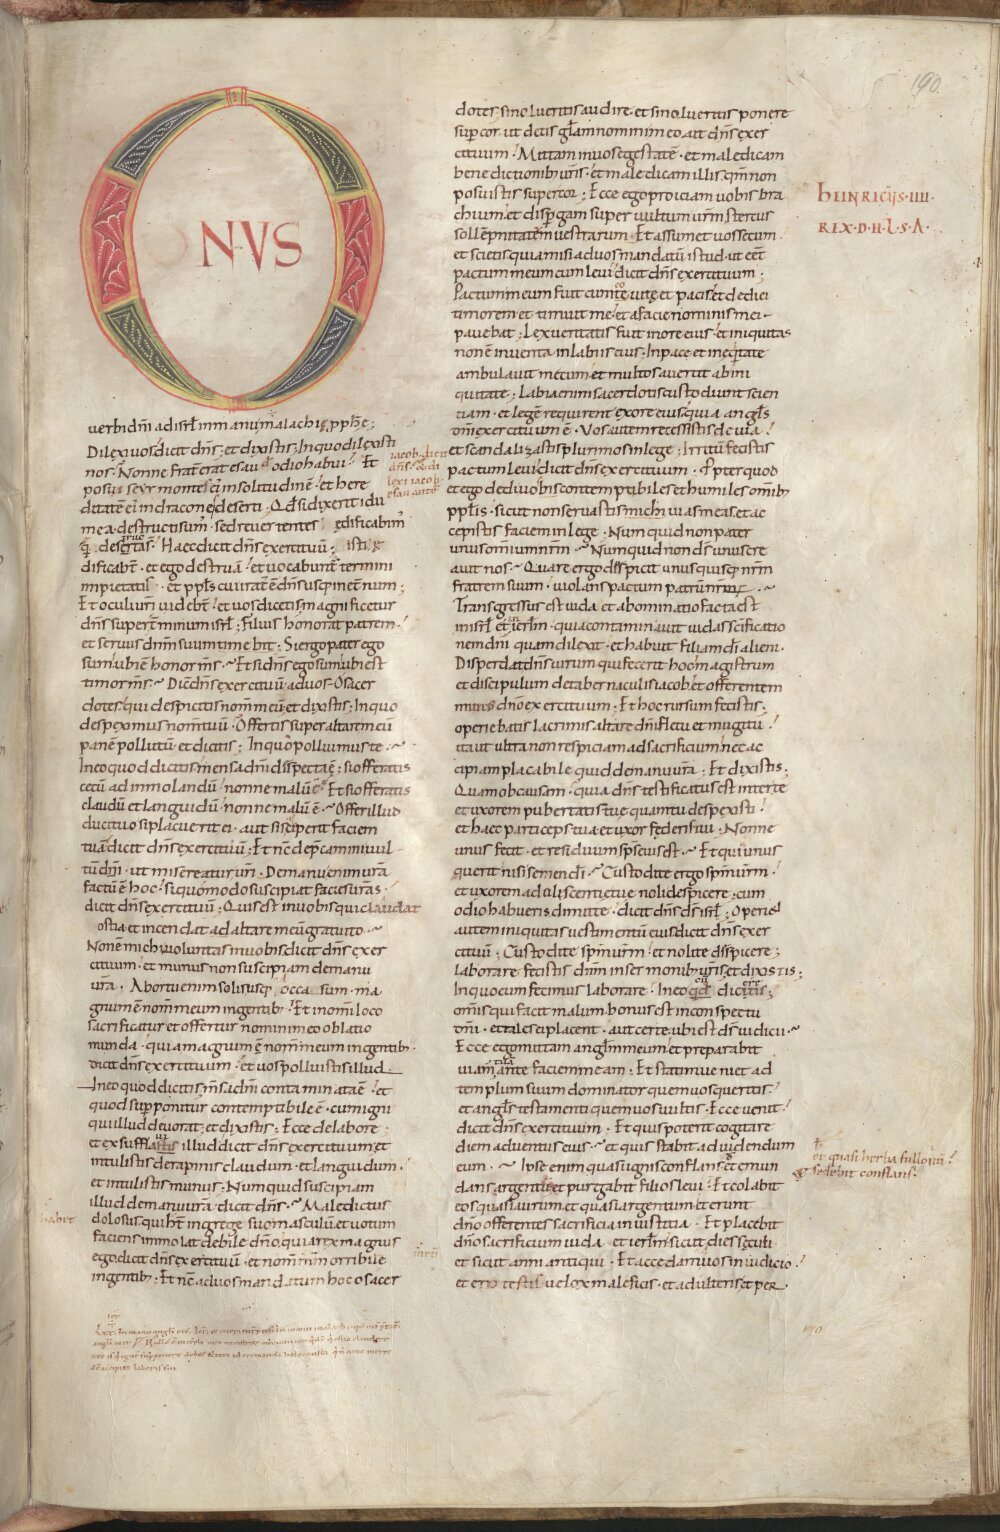 ONVS
uerbi dñi ad isrł in manu malachi, pph̄ę;
Dilexi uos dicit dn̄s; et dixistis; In quo dilexisti
nos. Nonne frat̄ erat esau odio habui Et
posui seyr montes ei in solitudinē et here
ditatē ei in dracones deserti. Qđ si dixerit idu
mea. destructi sum. sed reuertentes ędificabim̄
Haec dicit dn̄s exercituū. isti ę
dificabn̄t. et ego destruā et uocabunt termini
impietatis. et ppłs cui iratꝰ ē dn̄s usq; in ęt̄num;
Et oculi ur̄i uidebn̄t et uos dicetis magnificetur
dn̄s sup termīnum isrł; Filius honorat patrem.
et seruus dnm̄ suum timebit: Si ergo pater ego
sum ubi ē honor m̄s. Et si dn̄s ego sum ubi est
timor m̄s. Dic̄ dn̄s exercituū ad uos. O sacer
dotes qui despicitis nom̄ meū et dixistis; In quo
despeximus nom̄ tuū. Offertis super altare meū
panē pollutū et dicitis; In quo polluimus te.
In eo quod dicitis mensa dn̄i despecta ē; si offeratis
cecū ad immolandū nonne malū ē Et si offeratis
claudū et languidū nonne malū ē. Offer illud
duci tuo si placuerit ei. aut si susciperit faciem
tuā dicit dn̄s exercituū; Et nc̄ dep̄camini uul
tū dn̄i. ut misereatur ur̄i. De manu enim ur̄a
factū ē hoc. si quomodo suscipiat facies ur̄as.
dicit dn̄s exercituū; Quis est in uobis qui claudat
ostia et incendat ad altare meū gratuito.
Non ē michi uoluntas in uobis dicit dn̄s exer
cituum. et munus non suscipiam de manu
ur̄a. Ab ortu enim solis usq; occasum. ma
gnum ē nom̄ meum in gentib; Et in om̄i loco
sacrificatur et offertur nomini meo oblatio
munda. quia magnum ē nom̄ meum in gentib;
dicit dn̄s exercituum. et uos polluistis illud
In eo quod dicitis m̄sa dn̄i contaminata ē. et
quod supponitur contemptibile ē. cum igni
qui illud deuorat, et dixistis; Ecce de labore
et exsufflastis illud dicit dn̄s exercituum, et
intulistis de rapinis claudum. et languidum.
et intulistis munus; Numquid suscipiam
illud de manu ur̄a. dicit dn̄s. Maledictus
dolosus qui hēt in grege suo masculū et uotum
faciens immolat debile dn̄o. quia rex magnus
ego dicit dn̄s exercituū. et nom̄ m̄m orribile
in gentib; Et nc̄ ad uos mandatum hoc o sacer
habet
iacob. dicit
dn̄s. & di
lexi iacob
esau autē
dotes; si nolueritis audire. et si nolueritis ponere
sup cor. ut detis głam nomini meo. ait dn̄s exer
cituum. Mittam in uos egestatē. et maledicam
benedictionib; ur̄is. et maledicam illis. qm̄ non
posuistis super cor; Ecce ego proiciam uobis bra
chium. et dispgam super uultum ur̄m stercus
sollempnitatem uestrarum. Et assumet uos secum.
et scietis quia misi ad uos mandatū istud. ut eēt
pactum meum cum leui dicit dn̄s exercituum;
Pactum meum fuit cum eo uitę et pacis. et dedi ei
timorem et timuit me. et a facie nominis mei
pauebat; Lex ueritatis fuit in ore eius. et iniquitas
non ē inuenta in labiis eius. In pace et in eqitate
ambulauit mecum. et multos auertit ab ini
quitate; Labia enim sacerdotis custodiunt scien
tiam. et legē requirent ex ore eius. quia angłs
dn̄i exercituum ē. Vos autem recessistis de uia
et scandalizastis plurimos in lege; Irritū fecistis
pactum leui dicit dn̄s exercituum. Ppter quod
et ego dedi uobis contemptibiles et humiles omīb;
ppłis. sicut non seruastis michi uias meas. et ac
cepistis faciem in lege. Numquid non pater
unus omnium nr̄m. Numquid non ds̄ unus cre
auit nos. Quare ergo despicit unusquisq; nr̄m
fratrem suum. uiolans pactum patrū nr̄oꝝ.
Transgressus est iuda. et abominatio facta est
in isrł et in ierłm. quia contaminauit iudas scificatio
nem dn̄i quam dilexit. et habuit filiam di alieni.
Disperdat dn̄s uirum qui fecerit hoc. magistrum
et discipulum de tabernaculis iacob. et offerentem
munus dn̄o exercituum. Et hoc rursum fecistis.
operiebatis lacrimis altare dn̄i fletu et mugitu
ita ut ultra non respiciam ad sacrificium nec ac
cipiam placabile quid de manu ur̄a; Et dixistis;
Quam ob causam. quia dn̄s testificatus est inter te
et uxorem pubertatis tuę quam tu despexisti
et haec particeps tua et uxor fęderis tui; Nonne
unus fecit. et residuum sps̄ eius est. Et qui unus
querit nisi semen di. Custodite ergo spm̄ ur̄m
et uxorem adoliscentię tuę noli despicere. cum
odio habueris dimitte. dicit dn̄s ds̄ isrł; Operiet
autem iniquitas uestimentū eius dicit dn̄s exer
cituū; Custodite spm̄ ur̄m. et nolite despicere;
laborare fecistis dnm̄ in sermonib; ur̄is. et dixistis;
In quo eum fecimus laborare. In eo qđ dicitis;
Om̄is qui facit malum bonus est in conspectu
dn̄i. et tales ei placent. aut certe ubi est ds̄ iudicii
Ecce ego mittam angłm meum et preparabit
uiam ante faciem meam. Et statim ueniet ad
templum suum dominator quem uos queritis.
et angłs testamenti quem uos uultis. Ecce uenit
dicit dn̄s exercituum. Et quis poterit cogitare
diem aduentus eius. et quis stabit ad uidendum
eum. Ipse enim quasi ignis conflans et emun
dans argentū et purgabit filios leui. Et colabit
eos quasi aurum et quasi argentum. et erunt
dn̄o offerentes sacrificia in iustitia. Et placebit
dn̄o sacrificium iuda et ierłm. sicut dies sęculi
et sicut anni antiqui. Et accedam ad uos in iudicio.
et ero testis uelox maleficis. et adulteris. et per
190.
heinricus. iiii.
REX. D. H. L. S. A.
et quasi herba fullonū.
& sedebit conflans.
190